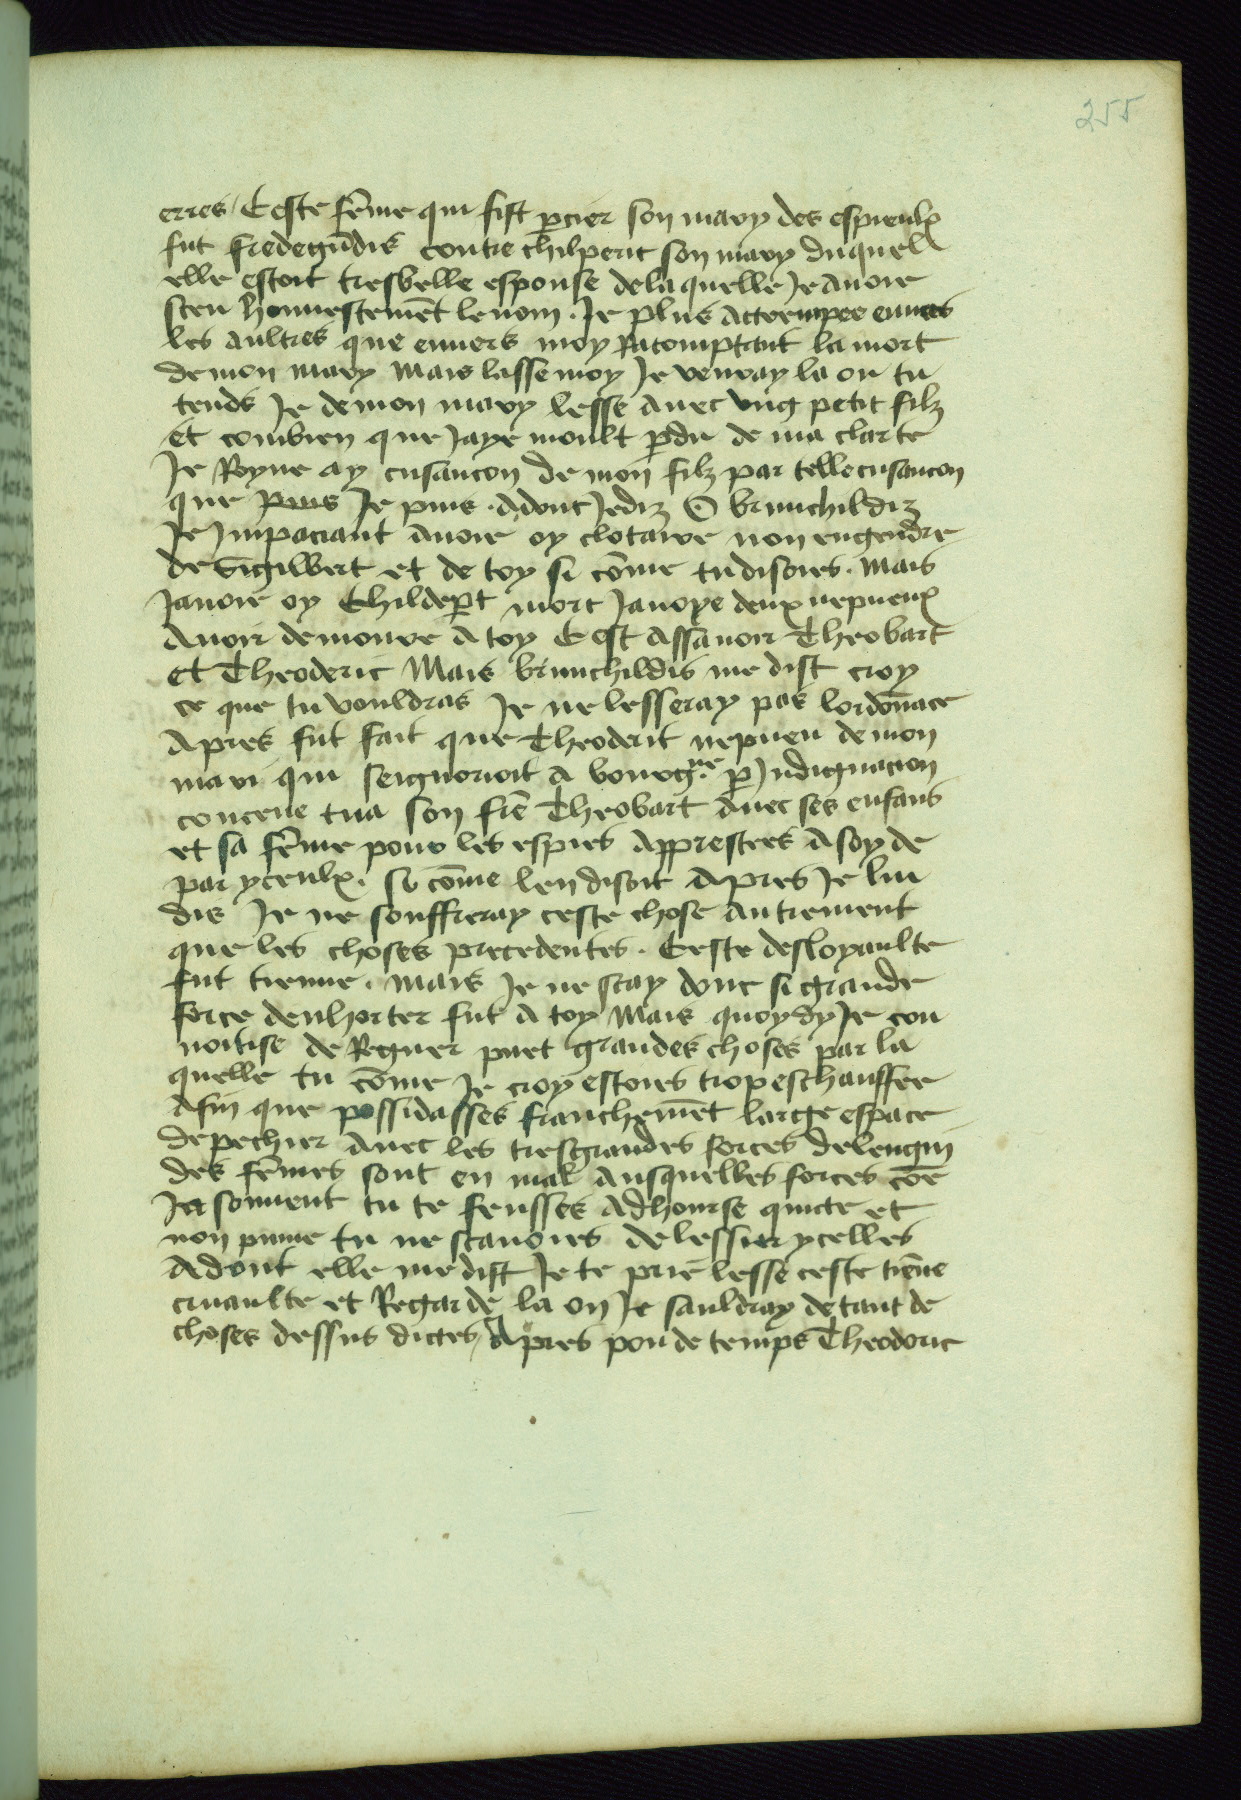 255
erres / Ceste fēme qui fist pcier son mary des espieulx
fut fredegūdis contre chilperic son mary duquel
elle estoit tresbelle espouse de laquelle Je avoie
sceu honnestemēt le nom . Je plus attrempee envers
les aultres que envers moy Racomptant la mort
de mon mary Mais lasse moy Je venray la ou tu
tends Je de mon mary lesse avec ung petit filz
et combien que Jaye moult pdu de ma clarte
Je Royne ay cusancon de mon filz par telle cusancon
que puis Je puis . Adont Je diz O brunchildiz
Je Impaciant avoie oy clotaire non engendre
de Sigilbert et de toy si cōme tu disoies . Mais
Javoie oy Childept mort Javoye deux nepveux
avoir demoure a toy Cest assavoir Theobart
et Theoderic Mais brunchildis me dist croy
ce que tu vouldras Je ne lesseray pas lordonāce
Apres fut fait que Theoderic nepveu de mon
mari qui seignorioit a bourgne p Indignacion
conceue tua son frē Theobart avec ses enfans
et sa fēme pour les espies apprestees a soy de
par yceulx . si cōme len disoit Apres Je lui
dis Je ne souffreray ceste chose autrement
que les choses precedentes . Ceste desloyaulte
fut tienne . Mais Je ne scay donc si grande
force denhorter fut a toy Mais quoy dy Je con
voitise de Regner puet grandes choses par la
quelle tu cōme Je croy estoies trop eschauffee
Afin que possidasses franchemēt large espace
de pechier avec les tresgrandes forces de lengin
des fēmes sont en mal ausquelles forces cōe
Ja souvent tu te feusses adhourse quicte et
non punie tu ne scavoies delessier ycelles
Adont elle me dist Je te prie lesse ceste tiēne
cruaulte et Regarde la ou Je sauldray de tant de
choses dessus dictes / Apres pou de temps Theodoric